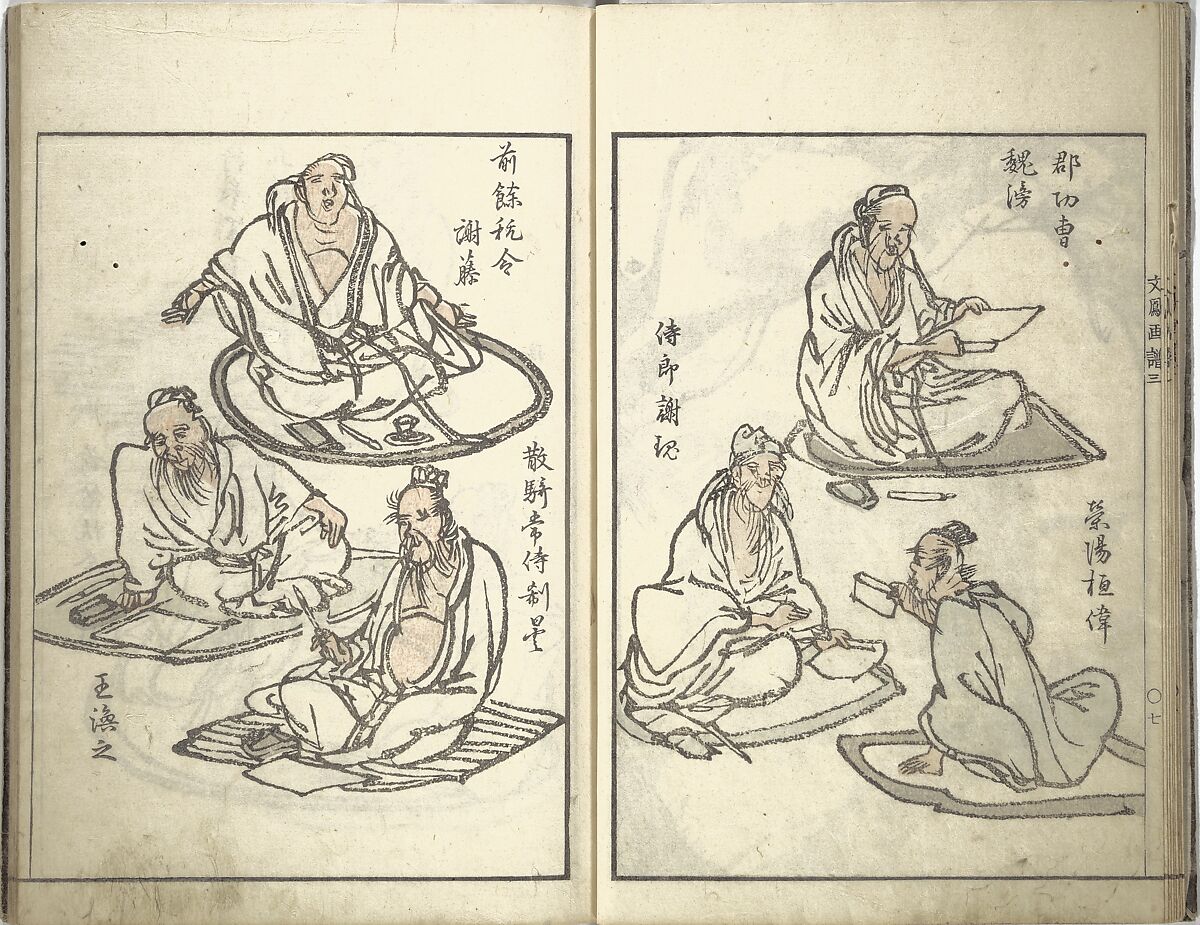 文鳳画譜三
〇七
郡功曹
魏滂
榮陽桓偉
侍郎謝瑰
前餘杭令
謝藤
散騎常侍
王渙之